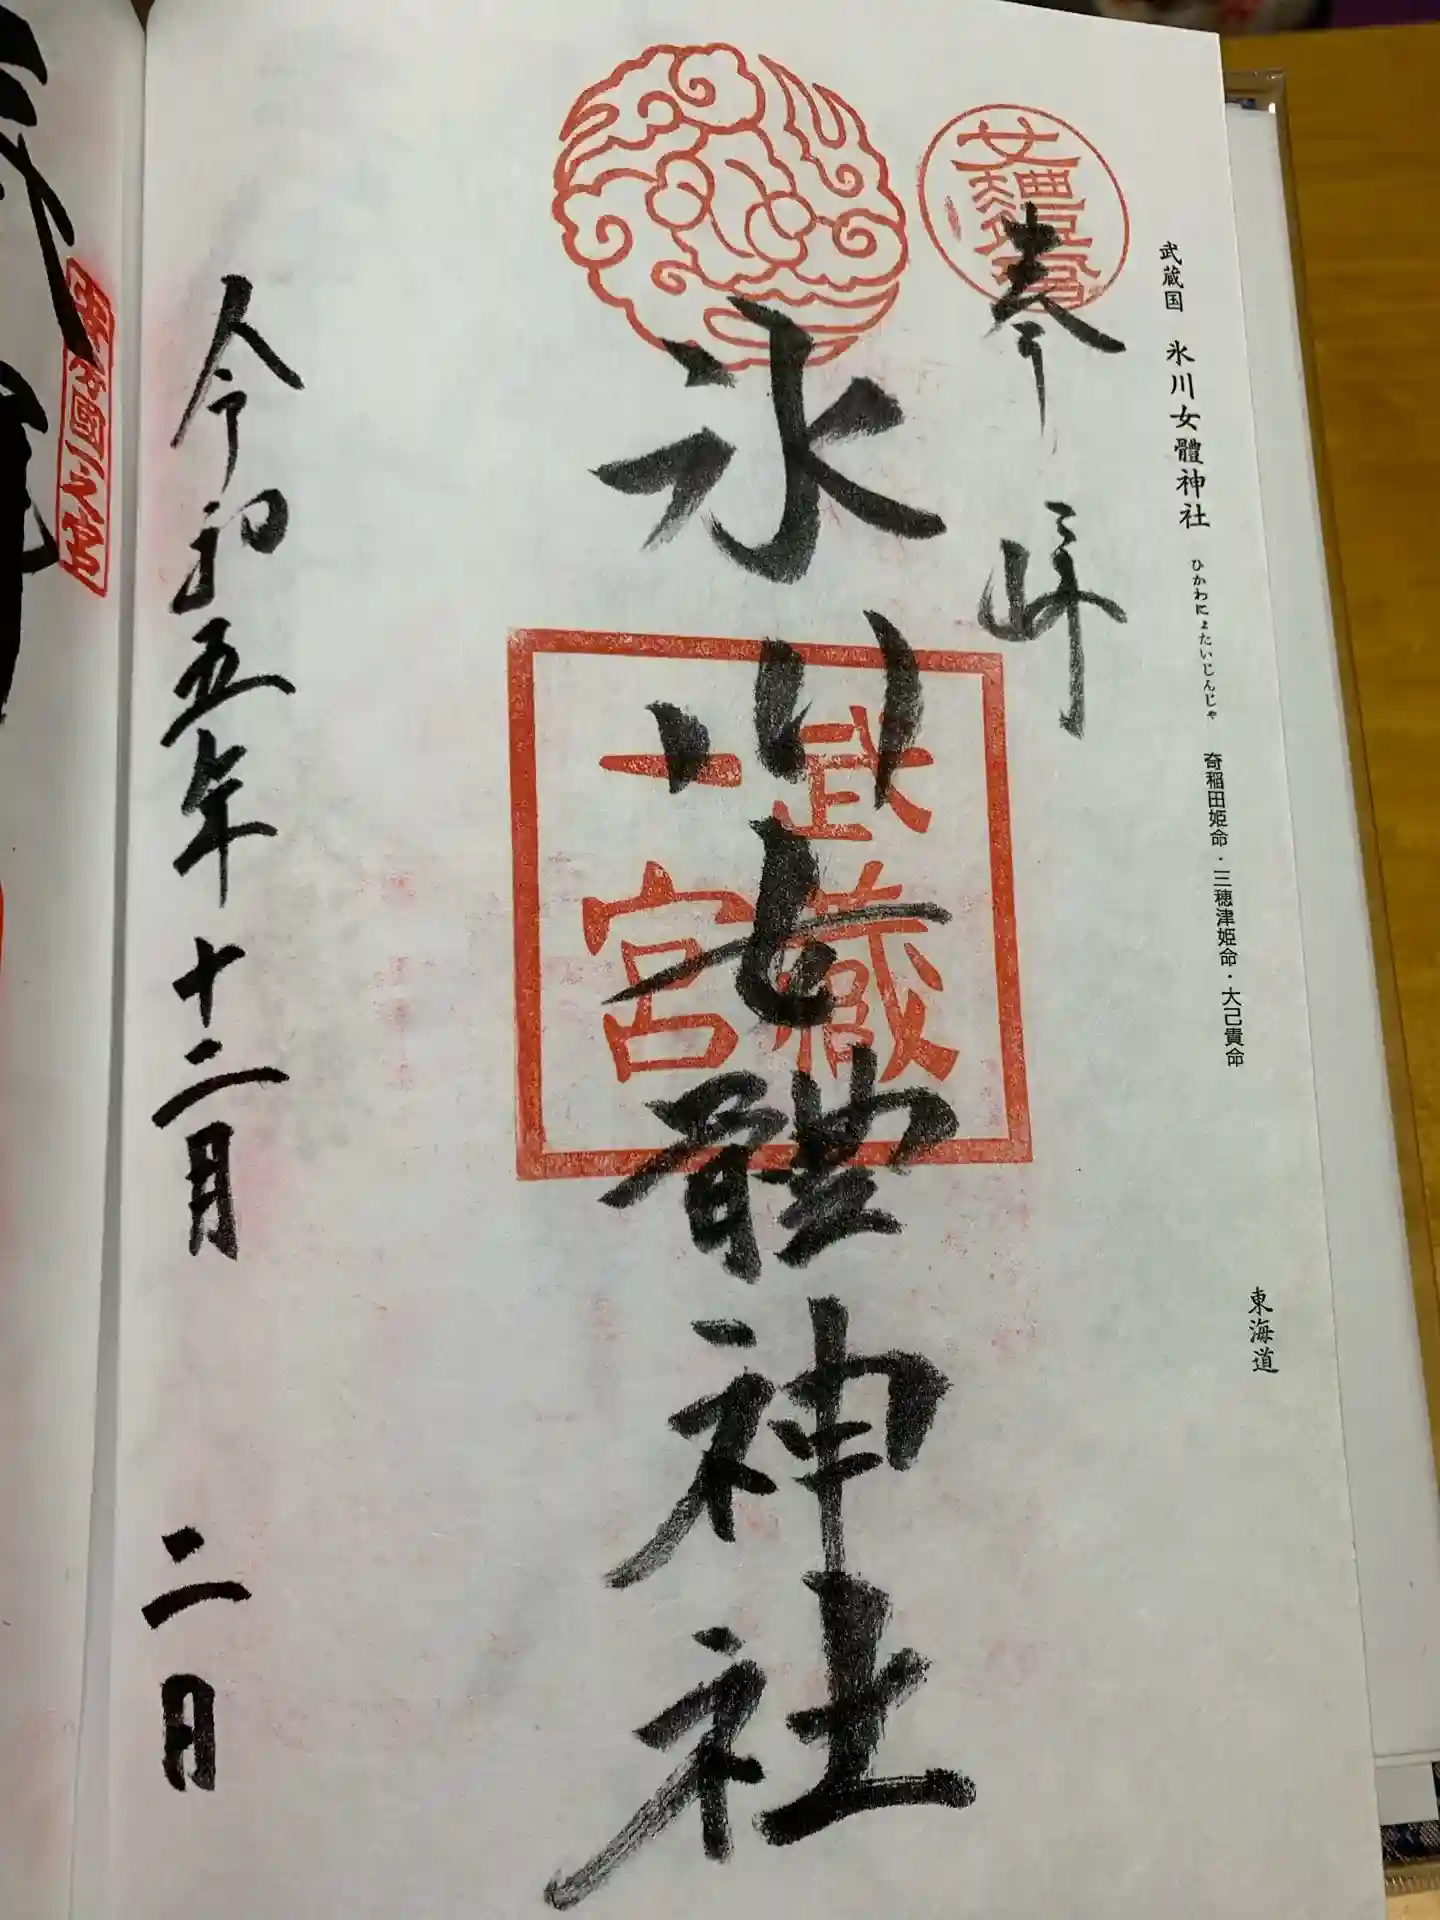 武蔵国 氷川女體神社 ひかわにょたいじんじゃ 奇稲田姫命・三穂津姫命・大己貴命 東海道
奉拝
氷川女體神社
武藏
一宮
令和五年十二月 二日